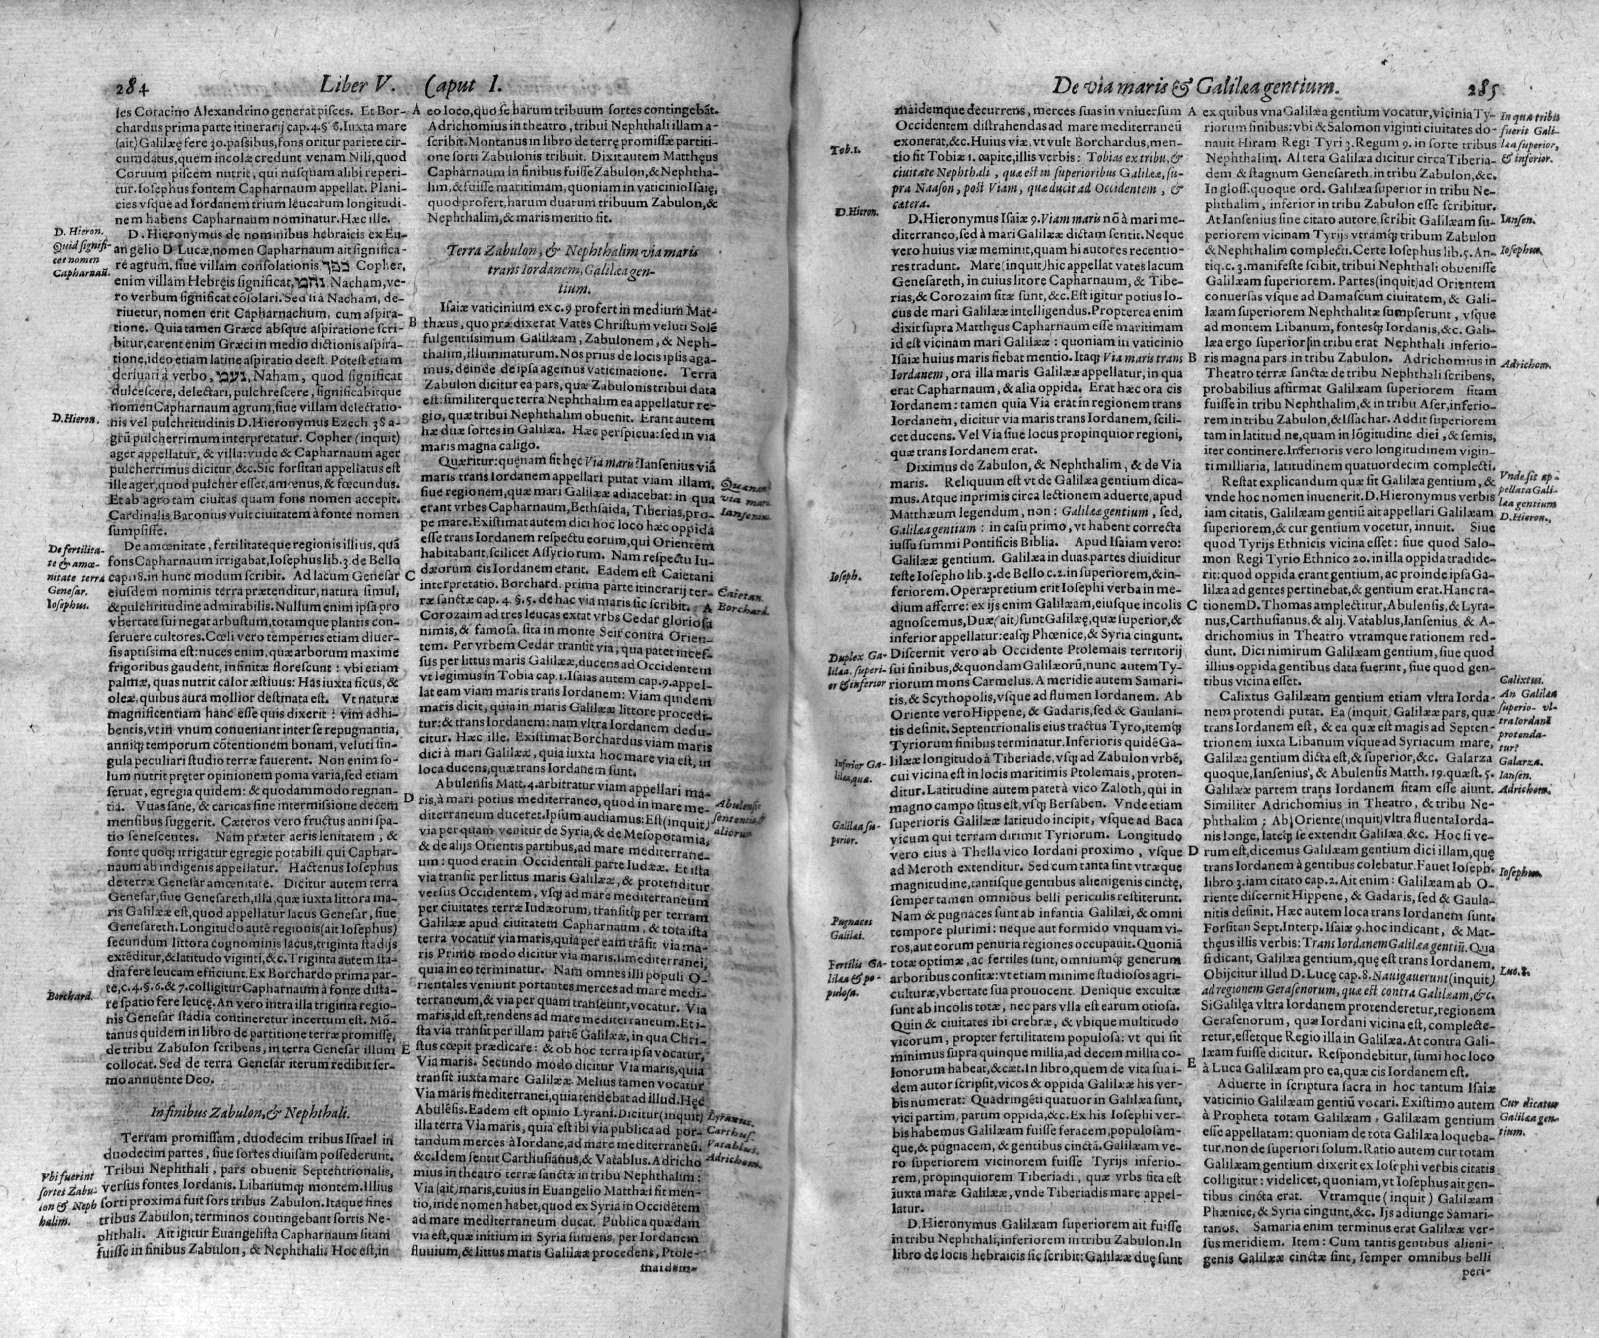 284 Liber V. Caput I.
les Coracino Alexandrino generat pisces. Et Bor-
chardus prima parte itinerarij cap. 4. §. 6. Iuxta mare
(ait) Galilęę fere 30. passibus, fons oritur pariete cir-
cumdatus, quem incolæ credunt venam Nili, quod
Coruum piscem nutrit, qui nusquam alibi reperi-
tur. Iosephus fontem Capharnaum appellat. Plani-
cies vsque ad Iordanem trium leucarum longitudi-
nem habens Capharnaum nominatur. Hæc ille.
D. Hieronymus de nominibus hebraicis ex Eu-
angelio D Lucæ, nomen Capharnaum ait significa-
re agrum, siue villam consolationis כפר Copher,
enim villam Hebręis significat, נחם, Nacham, ve-
ro verbum significat cōsolari. Sed si à Nacham, de-
riuetur, nomen erit Capharnachum, cum aspira-
tione. Quia tamen Græce absque aspiratione scri-
bitur, carent enim Græci in medio dictionis aspira-
tione, ideo etiam latine aspiratio deest. Potest etiam
deriuari à verbo, נעם, Naham, quod significat
dulcescere, delectari, pulchrescere, significabitque
nomen Capharnaum agrum, siue villam delectatio-
nis vel pulchritudinis D. Hieronymus Ezech 38 a-
grū pulcherrimum interpretatur. Copher (inquit)
ager appellatur, & villa: vnde & Capharnaum ager
pulcherrimus dicitur, &c. Sic forsitan appellatus est
ille ager, quod pulcher esset, amœnus, & fœcundus.
Et ab agro tam ciuitas quam fons nomen accepit.
Cardinalis Baronius vult ciuitatem à fonte nomen
sumpsisse.
De amœnitate, fertilitateque regionis illius, quā
fons Capharnaum irrigabat, Iosephus lib. 3. de Bello
cap. 18. in hunc modum scribit. Ad lacum Genesar
eiusdem nominis terra prætenditur, natura simul,
& pulchritudine admirabilis. Nullum enim ipsa pro
vbertate sui negat arbustum, totamque plantis con-
seruere cultores. Cœli vero temperies etiam diuer-
sis aptissima est: nuces enim, quæ arborum maxime
frigoribus gaudent, infinitæ florescunt: vbi etiam
palmæ, quas nutrit calor æstiuus: Hās iuxta ficus, &
oleæ, quibus aura mollior destinata est. Vt naturæ
magnificentiam hanc esse quis dixerit: vim adhi-
bentis, vt in vnum conueniant inter se repugnantia,
anniq́; temporum cōtentionem bonam, veluti sin-
gula peculiari studio terræ fauerent. Non enim so-
lum nutrit pręter opinionem poma varia, sed etiam
seruat, egregia quidem: & quodammodo regnan-
tia. Vuas sane, & caricas sine intermissione decem
mensibus suggerit. Cæteros vero fructus anni spa-
tio senescentes. Nam præter aeris lenitatem, &
fonte quoq́; irrigatur egregie potabili qui Caphar-
naum ab indigenis appellatur. Hactenus Iosephus
de terræ Genesar amœnitate. Dicitur autem terra
Genesar, siue Genesareth, illa, quæ iuxta littora ma-
ris Galilææ est, quod appellatur lacus Genesar, siue
Genesareth. Longitudo autē regionis (ait Iosephus)
secundum littora cognominis lacus, triginta stadijs
extēditur, & latitudo viginti, &c. Triginta autem sta-
dia fere leucam efficiunt. Ex Borchardo prima par-
te, c. 4. §. 6. & 7. colligitur Capharnaum à fonte dista-
re spatio fere leucę. An vero intra illa triginta regio-
nis Genesar stadia contineretur incertum est. Mō-
tanus quidem in libro de partitione terræ promissę,
de tribu Zabulon scribens, in terra Genesar illum
collocat. Sed de terra Genesar iterum redibit ser-
mo annuente Deo.
In finibus Zabulon, & Nephthali.
Terram promissam, duodecim tribus Israel in
duodecim partes, siue sortes diuisam possederunt.
Tribui Nephthali, pars obuenit Septentrionalis,
versus fontes Iordanis. Libanumq́; montem. Illius
sorti proxima fuit sors tribus Zabulon. Itaque fines
tribus Zabulon, terminos contingebant sortis Ne-
phthali. Ait igitur Euangelista Capharnaum sitam
fuisse in finibus Zabulon, & Nephthali. Hoc est, in
D. Hieron.
Quid signifi-
cet nomen
Capharnaū.
D. Hieron.
De fertilita-
te & amœ-
nitate terræ
Genesar.
Iosephus.
Borchard.
Vbi fuerint
sortes Zabu-
lon & Neph
halim.
A
B
C
D
E
eo loco, quo se harum tribuum sortes contingebāt.
Adrichomius in theatro, tribui Nephthali illam a-
scribit. Montanus in libro de terrę promissæ partiti-
one sorti Zabulonis tribuit. Dixit autem Mattheus
Capharnaum in finibus fuisse Zabulon, & Neptha-
lim, & fuisse maritimam, quoniam in vaticinio Isaię,
quod profert, harum duarum tribuum Zabulon, &
Nephthalim, & maris mentio fit.
Terra Zabulon, & Nephthalim via maris
trans Iordanem, Galilæa gen-
tium.
Isaiæ vaticinium ex c. 9 profert in medium Mat-
thæus, quo prædixerat Vates Christum veluti Solē
fulgentissimum Galilæam, Zabulonem, & Neph-
thalim, illuminaturum. Nos prius de locis ipsis aga-
mus, deinde de ipsa agemus vaticinatione. Terra
Zabulon dicitur ea pars, quæ Zabulonis tribui data
est: similiterque terra Nephthalim ea appellatur re-
gio, quæ tribui Nephthalim obuenit. Erant autem
hæ duæ sortes in Galilæa. Hæc perspicua: sed in via
maris magna caligo.
Quæritur: quęnam sit hęc Via maris? Iansenius viā
maris trans Iordanem appellari putat viam illam,
siue regionem, quæ mari Galilææ adiacebat: in qua
erant vrbes Capharnaum, Bethsaida, Tiberias, pro-
pe mare. Existimat autem dici hoc loco hæc oppida
esse trans Iordanem respectu eorum, qui Orientem
habitabant, scilicet Assyriorum. Nam respectu Iu-
dæorum cis Iordanem erant. Eadem est Caietani
interpretatio. Borchard. prima parte itinerarij ter-
ræ sanctæ cap. 4. §. 5. de hac via maris sic scribit. A
Corozaim ad tres leucas extat vrbs Cedar gloriosa
nimis, & famosa, sita in monte Seir contra Orien-
tem. Per vrbem Cedar transit via, qua patet inces-
sus per littus maris Galilææ, ducens ad Occidentem
vt legimus in Tobia cap. 1. Isaias autem cap. 9. appel-
lat eam viam maris trans Iordanem: Viam quidem
maris dicit, quia in maris Galilææ littore procedi-
tur: & trans Iordanem: nam vltra Iordanem dedu-
citur. Hæc ille. Existimat Borchardus viam maris
dici à mari Galilææ, quia iuxta hoc mare via est, in
loca ducens, quæ trans Iordanem sunt.
Abulensis Matt. 4. arbitratur viam appellari ma-
ris, à mari potius mediterraneo, quod in mare me-
diterraneum duceret. Ipsum audiamus: Est (inquit)
via per quam venitur de Syria, & de Mesopotamia,
& de alijs Orientis partibus, ad mare mediterrane-
um: quod erat in Occidentali parte Iudææ. Et ista
via transit per littus maris Galilææ, & protenditur
versus Occidentem, vsq́; ad mare mediterraneum
per ciuitates terræ Iudæorum, transitq́; per terram
Galilææ apud ciuitatem Capharnaum, & tota ista
terra vocatur via maris, quia per eam trāsit via ma-
ris Primo modo dicitur via maris. i. mediterranei,
quia in eo terminatur. Nam omnes illi populi O-
rientales veniunt portantes merces ad mare medi-
terraneum, & via per quam transeunt, vocatur. Via
maris, id est, tendens ad mare mediterraneum. Et i-
sta via transit per illam partē Galilææ, in qua Chri-
stus cœpit prædicare: & ob hoc terra ipsa vocatur,
Via maris. Secundo modo dicitur Via maris, quia
transit iuxta mare Galilææ. Melius tamen vocatur
Via maris mediterranei, quia tendebat ad illud. Hęc
Abulēsis. Eadem est opinio Lyrani. Dicitur (inquit)
illa terra Via maris, quia est ibi via publica ad por-
tandum merces à Iordane, ad mare mediterraneū.
&c. Idem sentit Carthusianus, & Vatablus. Adricho
mius in theatro terræ sanctæ in tribu Nephthalim:
Via (ait) maris, cuius in Euangelio Matthæi fit men-
tio, inde nomen habet, quod ex Syria in Occidētem
ad mare mediterraneum ducat. Publica quædam
via est, quæ initium in Syria sumens, per Iordanem
fluuium, & littus maris Galilææ procedens, Ptole-
maidem-
Quænam
via maris
Iansenius.
Caietan.
Borchard.
Abulensis
sententia &
aliorum.
Lyranus.
Carthus.
Vatablus.
Adrichom.
De via maris & Galilæa gentium. 285
maidemque decurrens, merces suas in vniuersum
Occidentem distrahendas ad mare mediterraneū
exonerat, &c. Huius viæ, vt vult Borchardus, men-
tio fit Tobiæ 1. capite, illis verbis: Tobias ex tribu, &
ciuitate Nephthali, quæ est in superioribus Galilææ, su-
pra Naason, post Viam, quæ ducit ad Occidentem, &
cætera.
D. Hieronymus Isaiæ 9. Viam maris nō à mari me-
diterraneo, sed à mari Galilææ dictam sentit. Neque
vero huius viæ meminit, quam hi autores recentio-
res tradunt. Mare (inquit) hic appellat vates lacum
Genesareth, in cuius litore Capharnaum, & Tibe-
rias, & Corozaim sitæ sunt, &c. Est igitur potius lo-
cus de mari Galilææ intelligendus. Propterea enim
dixit supra Mattheus Capharnaum esse maritimam
id est vicinam mari Galilææ: quoniam in vaticinio
Isaiæ huius maris fiebat mentio. Itaq́; Via maris trans
Iordanem, ora illa maris Galilææ appellatur, in qua
erat Capharnaum, & alia oppida. Erat hæc ora cis
Iordanem: tamen quia Via erat in regionem trans
Iordanem, dicitur via maris trans Iordanem, scili-
cet ducens. Vel Via siue locus propinquior regioni,
quæ trans Iordanem erat.
Diximus de Zabulon, & Nephthalim, & de Via
maris. Reliquum est vt de Galilæa gentium dica-
mus. Atque inprimis circa lectionem aduerte, apud
Matthæum legendum, non: Galilæa gentium, sed,
Galilæa gentium: in casu primo, vt habent correcta
iussu summi Pontificis Biblia. Apud Isaiam vero:
Galilææ gentium. Galilæa in duas partes diuiditur
teste Iosepho lib. 3. de Bello c. 2. in superiorem, & in-
feriorem. Operæpretium erit Iosephi verba in me-
dium afferre: ex ijs enim Galilæam, eiusque incolis
agnoscemus, Duæ (ait) sunt Galilęę, quæ superior, &
inferior appellatur: easq́; Phœnice, & Syria cingunt.
Discernit vero ab Occidente Ptolemais territorij
sui finibus, & quondam Galilæorū, nunc autem Ty-
riorum mons Carmelus. A meridie autem Samari-
tis, & Scythopolis, vsque ad flumen Iordanem. Ab
Oriente vero Hippene, & Gadaris, sed & Gaulani-
tis definit. Septentrionalis eius tractus Tyro, itemq́;
Tyriorum finibus terminatur. Inferioris quidē Ga-
lilææ longitudo à Tiberiade, vsq́; ad Zabulon vrbē,
cui vicina est in locis maritimis Ptolemais, proten-
ditur. Latitudine autem patet à vico Zaloth, qui in
magno campo situs est, vsq́; Bersaben. Vnde etiam
superioris Galilææ latitudo incipit, vsque ad Baca
vicum qui terram dirimit Tyriorum. Longitudo
vero eius à Thella vico Iordani proximo, vsque
ad Meroth extenditur. Sed cum tanta sint vtræque
magnitudine, tantisque gentibus alienigenis cinctę,
semper tamen omnibus belli periculis restiterunt.
Nam & pugnaces sunt ab infantia Galilæi, & omni
tempore plurimi: neque aut formido vnquam vi-
ros, aut eorum penuria regiones occupauit. Quoniā
totæ optimæ, ac fertiles sunt, omniumq́; generum
arboribus consitæ: vt etiam minime studiosos agri-
culturæ, vbertate sua prouocent. Denique excultæ
sunt ab incolis totæ, nec pars vlla est earum otiosa.
Quin & ciuitates ibi crebræ, & vbique multitudo
vicorum, propter fertilitatem populosa: vt qui sit
minimus supra quinque millia, ad decem millia co-
lonorum habeat, & cæt. In libro, quem de vita sua i-
dem autor scripsit, vicos & oppida Galilææ his ver-
bis numerat: Quadringēti quatuor in Galilæa sunt,
vici partim, partum oppida, &c. Ex his Iosephi ver-
bis habemus Galilæam fuisse feracem, populosam-
que, & pugnacem, & gentibus cinctā. Galilæam ve-
ro superiorem vicinorem fuisse Tyrijs inferio-
rem, propinquiorem Tiberiadi, quæ vrbs sita est
iuxta maræ Galilææ, vnde Tiberiadis mare appel-
latur.
D. Hieronymus Galilæam superiorem ait fuisse
in tribu Nephthali, inferiorem in tribu Zabulon. In
libro de locis hebraicis sic scribit: Galilææ duę sunt
Tob. 1.
D. Hieron.
Ioseph.
Duplex Ga-
lilæa. superi-
or & inferior
Inferior Ga-
lilæa, quæ.
Galilæa su-
perior.
Pugnaces
Galilæi.
Fertilis Ga-
lilæa & po-
pulosa.
A
B
C
D
E
ex quibus vna Galilæa gentium vocatur, vicinia Ty-
riorum finibus: vbi & Salomon viginti ciuitates do-
nauit Hiram Regi Tyri 3. Regum 9. in sorte tribus
Nephthalim. Altera Galilæa dicitur circa Tiberia-
dem & stagnum Genesareth in tribu Zabulon, &c.
In gloss. quoque ord. Galilæa superior in tribu Ne-
phthalim, inferior in tribu Zabulon esse scribitur.
At Iansenius sine citato autore, scribit Galilæam su-
periorem vicinam Tyrijs vtramq́; tribum Zabulon
& Nephthalim complecti. Certe Iosephus lib. 5. An-
tiq. c. 3. manifeste scibit, tribui Nephthali obuenisse
Galilæam superiorem. Partes (inquit) ad Orientem
conuersas vsque ad Damascum ciuitatem, & Gali-
læam superiorem Nephthalitæ sumpserunt, vsque
ad montem Libanum, fontesq́; Iordanis, &c. Gali-
læa ergo superior in tribu erat Nephthali inferio-
ris magna pars in tribu Zabulon. Adrichomius in
Theatro terræ sanctæ de tribu Nephthali scribens,
probabilius affirmat Galilæam superiorem sitam
fuisse in tribu Nephthalim, & in tribu Aser, inferio-
rem in tribu Zabulon, & Issachar. Addit superiorem
tam in latitudine, quam in lōgitudine diei, & semis,
iter continere. Inferioris vero longitudinem vigin-
ti milliaria, latitudinem quatuordecim complecti.
Restat explicandum quæ sit Galilæa gentium, &
vnde hoc nomen inuenerit. D. Hieronymus verbis
iam citatis, Galilæam gentiū ait appellari Galilæam
superiorem, & cur gentium vocetur, innuit. Siue
quod Tyrijs Ethnicis vicina esset: siue quod Salo-
mon Regi Tyrio Ethnico 20. in illa oppida tradide-
rit: quod oppida erant gentium, ac proinde ipsa Ga-
lilæa ad gentes pertinebat, & gentium erat. Hanc ra-
tionem D. Thomas amplectitur, Abulensis, & Lyra-
nus, Carthusianus, & alij. Vatablus, Iansenius & A-
drichomius in Theatro vtramque rationem red-
dunt. Dici nimirum Galilæam gentium, siue quod
illius oppida gentibus data fuerint, siue quod gen-
tibus vicina esset.
Calixtus Galilæam gentium etiam vltra Iorda-
nem protendi putat. Ea (inquit) Galilææ pars, quæ
trans Iordanem est, & ea quæ est magis ad Septen-
trionem iuxta Libanum vsque ad Syriacum mare,
Galilæa gentium dicta est, & superior, &c. Galarza
quoque, Iansenius, & Abulensis Matth. 19. quæst. 5.
Galilææ partem trans Iordanem sitam esse aiunt.
Similiter Adrichomius in Theatro, & tribu Ne-
phthalim; Ab, Oriente (inquit) vltra fluenta Iorda-
nis longe, lateq́; se extendit Galilæa, &c. Hoc si ve-
rum est, dicemus Galilæam gentium dici illam, quę
trans Iordanem à gentibus colebatur. Fauet Ioseph.
libro 3. iam citato cap. 2. Ait enim: Galilæam ab O-
riente discernit Hippene, & Gadaris, sed & Gaula-
nitis definit. Hæc autem loca trans Iordanem sunt.
Forsitan Sept. Interp. Isaiæ 9. hoc indicant, & Mat-
thęus illis verbis: Trans Iordanem Galilæa gentiū. Qua
si dicant, Galilæa gentium, quę est trans Iordanem,
Obijcitur illud D. Lucę cap. 8. Nauigauerunt (inquit)
ad regionem Gerasenorum, quæ est contra Galilæam, &c.
Si Galilęa vltra Iordanem protenderetur, regionem
Gerasenorum, quæ Iordani vicina est, complecte-
retur, essetque Regio illa in Galilæa. At contra Gali-
læam fuisse dicitur. Respondebitur, sumi hoc loco
à Luca Galilæam pro ea, quæ cis Iordanem est.
Aduerte in scriptura sacra in hoc tantum Isaiæ
vaticinio Galilæam gentiū vocari. Existimo autem
à Propheta totam Galilæam, Galilæam gentium
esse appellatam: quoniam de tota Galilæa loqueba-
tur, non de superiori solum. Ratio autem cur totam
Galilæam gentium dixerit ex Iosephi verbis citatis
colligitur: videlicet, quoniam, vt Iosephus ait gen-
tibus cincta erat. Vtramque (inquit) Galilæam
Phœnice, & Syria cingunt, &c. Ijs adiunge Samari-
tanos. Samaria enim terminus erat Galilææ ver-
sus meridiem. Item: Cum tantis gentibus alieni-
genis Galilææ cinctæ sint, semper omnibus belli
peri-
In qua tribu
fuerit Gali-
læa superior,
& inferior.
Iansen.
Iosephus.
Adrichom.
Vnde sit ap-
pellata Gali-
læa gentium
D. Hieron.
Calixtus.
An Galilæa
superior vl-
tra Iordanē
protenda-
tur?
Galarza.
Iansen.
Adrichom.
Iosephus.
Luc. 8.
Cur dicatur
Galilæa gen-
tium.